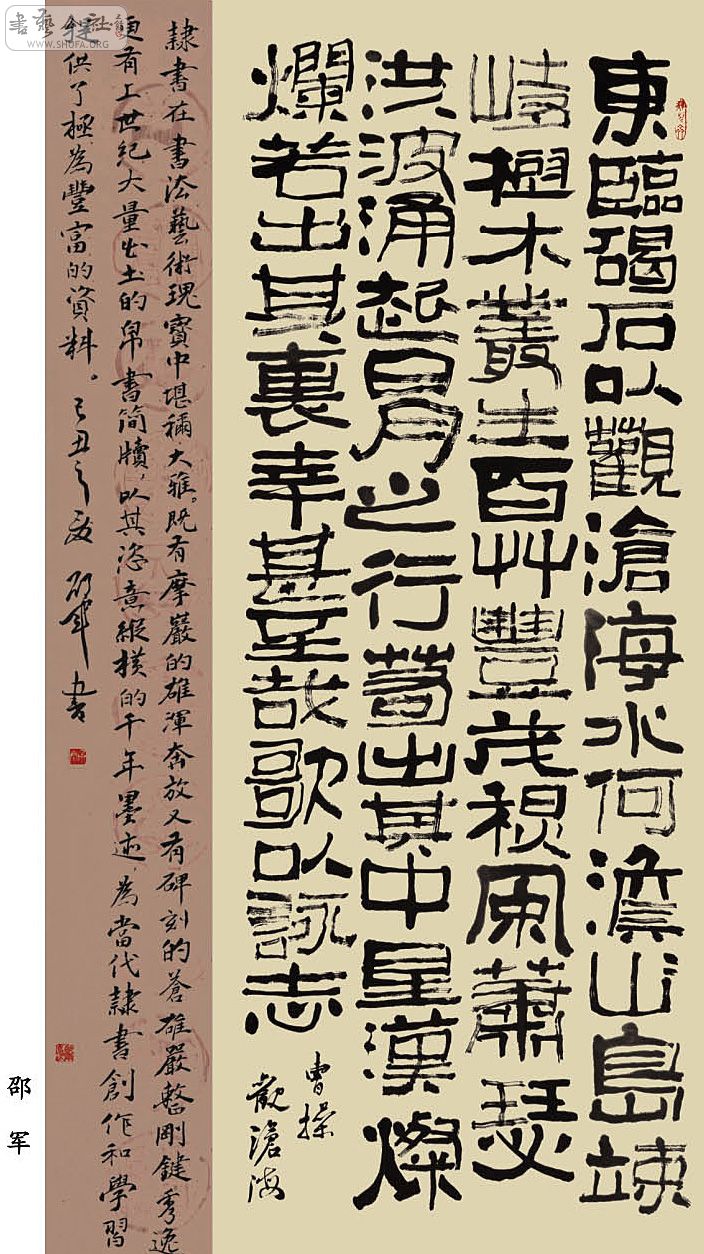 東臨碣石以觀滄海水何澹山島竦
峙樹木叢生百艸豐茂秋風蕭瑟
洪波涌起日月之行若出其中星漢燦
爛若出其裏幸甚至哉歌以詠志
曹操
觀滄海
隸書在書法藝術瑰寶中堪稱大雅。既有摩巖的雄渾奔放又有碑刻的蒼雄嚴整剛鍵秀逸
更有上世紀大量出土的帛書简牘,以其恣意縱横的千年墨迹,為當代隸書創作和學習
提供了極為豐富的資料。己丑之夏邵軍書
邵军
書藝社
WWW.SHUFA.ORG